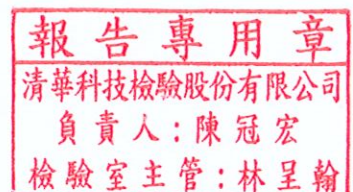 報告專用章
清華科技檢驗股份有限公司
負責人:陳冠宏
檢驗室主管:林呈翰